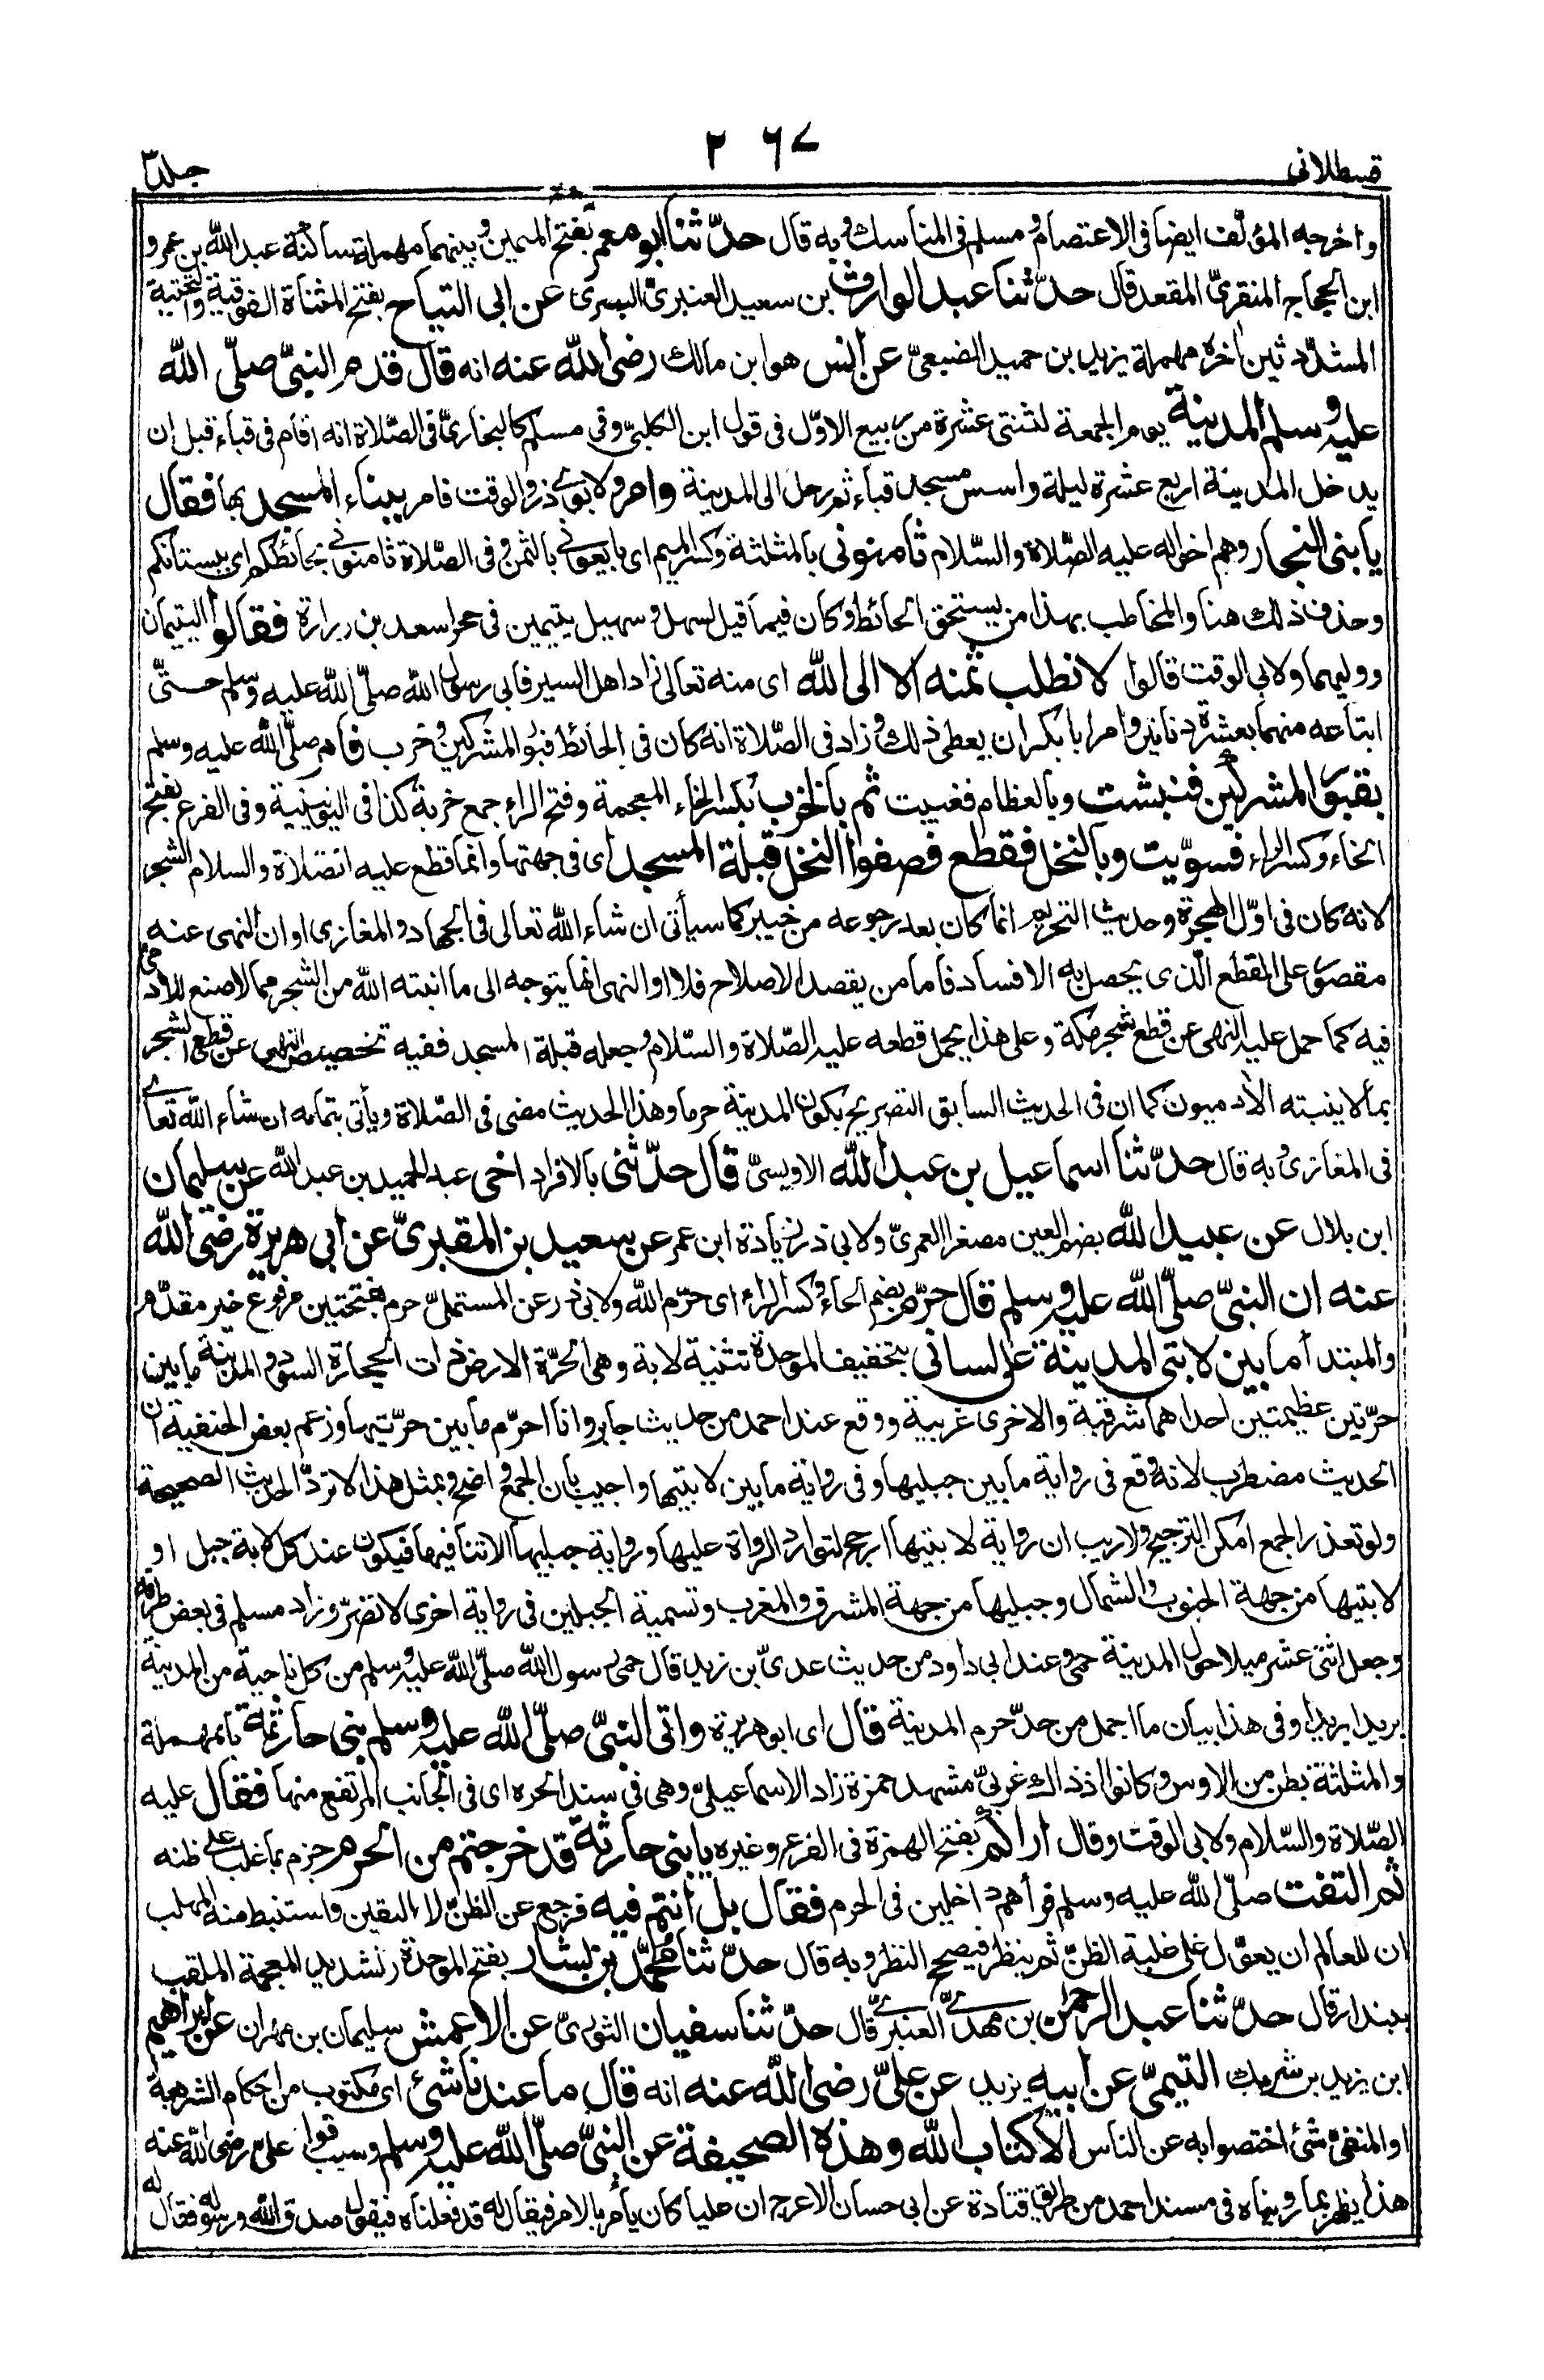 قسطلانی
٢٦٧
جلد٣
واخرجه المؤلف ايضا فى الاعتصام ومسلم فى المناسك وبه قال حدّثنا ابو معمر بفتح الميمين وبينهما مهملة ساكنة عبد الله بن عمرو
ابن الحجاج المنقرىّ المقعد قال حدّثنا عبد الوارث بن سعيد العنبرىّ البصرى عن ابى التياح بفتح المثناة الفوقية والتحتية
المشدّدتين اٰخره مهملة يزيد بن حميد الضبعىّ عن انس هو ابن مالك رضى الله عنه انه قال قدم النبىّ صلّى الله
عليه وسلم المدينة يوم الجمعة لثنتى عشرة من ربيع الاوّل فى قول ابن الكلبىّ وفى مسلم كالبخارىّ فى الصّلاة انه اقام فى قباء قبل ان
يدخل المدينة اربع عشرة ليلة واسس مسجد قباء ثم رحل الى المدينة وامر ولابوى ذر والوقت فامر ببناء المسجد بها فقال
يا بنى النجار وهم اخواله عليه الصّلاة والسّلام ثامنونى بالمثلثة وكسر الميم اى بايعونى بالثمن وفى الصّلاة ثامنونى بحائطكم اى ببستانكم
وحذف ذلك هنا والمخاطب بهذا من يستحق الحائط وكان فيما قيل لسهل وسهيل يتيمين فى حجر اسعد بن زرارة فقالوا اليتيمان
ووليهما ولابى الوقت قالوا لا نطلب ثمنه الا الى الله اى منه تعالى زاد اهل السير فابى رسول الله صلّى الله عليه وسلم حتّى
ابتاعه منهما بعشرة دنانير وامر ابا بكر ان يعطى ذلك وزاد فى الصّلاة انه كان فى الحائط قبور المشركين وخرب فامر صلّى الله عليه وسلم
بقبور المشركين فنبشت وبالعظام فغيبت ثم بالخرب بكسر الخاء المعجمة وفتح الراء جمع خربة كذا فى اليونينية وفى الفرع بفتح
الخاء وكسر الراء فسوّيت وبالنخل فقطع فصفوا النخل قبلة المسجد اى فى جهتها وانما قطع عليه الصّلاة والسلام الشجر
لانه كان فى اوّل الهجرة وحديث التحريم انما كان بعد رجوعه من خيبر كما سيأتى ان شاء الله تعالى فى الجهاد والمغازى او ان النهى عنه
مقصور على القطع الّذى يحصل به الافساد فاما من يقصد الاصلاح فلا او النهى انما يتوجه الى ما انبته الله من الشجر مما لا صنع للاٰدمى
فيه كما حمل عليه النهى عن قطع شجر مكة وعلى هذا يحمل قطعه عليه الصّلاة والسّلام وجعله قبلة المسجد ففيه تخصيص النهى عن قطع الشجر
بما لا ينبته الاٰدميون كما ان فى الحديث السابق التصريح بكون المدينة حرما وهذا الحديث مضى فى الصّلاة ويأتى بتمامه ان شاء الله تعالى
فى المغازى وبه قال حدّثنا اسماعيل بن عبد الله الاويسىّ قال حدّثنى بالافراد اخى عبد الحميد بن عبد الله عن سليمان
ابن بلال عن عبيد الله بضم العين مصغرا العمرىّ ولابى ذر زيادة ابن عمر عن سعيد بن المقبرىّ عن ابى هريرة رضى الله
عنه ان النبىّ صلّى الله عليه وسلم قال حرّم بضم الحاء وكسر الراء اى حرّم الله ولابى ذر عن المستملىّ حرم بفتحتين مرفوع خبر مقدّم
والمبتدأ ما بين لابتى المدينة على لسانى بتخفيف الموحدة تثنية لابة وهى الحرّة الارض ذات الحجارة السود والمدينة ما بين
حرّتين عظيمتين احداهما شرقية والاخرى غربية ووقع عند احمد من حديث جابر وانا احرّم ما بين حرّتيها وزعم بعض الحنفية ان
الحديث مضطرب لانه وقع فى رواية ما بين جبليها وفى رواية ما بين لابتيها واجيب بان الجمع واضح وبمثل هذا لا تردّ الاحاديث الصحيحة
ولو تعذر الجمع امكن الترجيح ولا ريب ان رواية لابتيها ارجح لتوارد الرواة عليها ورواية جبليها لا تنافيها فيكون عند كل لابة جبل او
لابتيها من جهة الجنوب والشمال وجبليها من جهة المشرق والمغرب وتسمية الجبلين فى رواية اخرى لا تضرّ وزاد مسلم فى بعض طرقه
وجعل اثنى عشر ميلا حول المدينة حمى وعند ابى داود من حديث عدىّ بن زيد قال حمى رسول الله صلّى الله عليه وسلم من كل ناحية من المدينة
بريدا بريدا وفى هذا بيان ما اجمل من حدّ حرم المدينة قال اى ابو هريرة واتى النبىّ صلّى الله عليه وسلم بنى حارثة بالمهملة
والمثلثة بطن من الاوس وكانوا اذ ذاك غربىّ مشهد حمزة زاد الاسماعيلىّ وهى فى سند الحره اى فى الجانب المرتفع منها فقال عليه
الصّلاة والسّلام ولابى الوقت وقال اراكم بفتح الهمزة فى الفرع وغيره يا بنى حارثة قد خرجتم من الحرم جزم بما غلب على ظنه
ثم التفت صلّى الله عليه وسلم فرأهم داخلين فى الحرم فقال بل انتم فيه فرجع عن الظنّ الى اليقين واستنبط منه المهلب
ان للعالم ان يعوّل على غلبة الظنّ ثم ينظر فيصحح النظر وبه قال حدّثنا محمّد بن بشار بفتح الموحدة وتشديد المعجمة الملقب
ببندار قال حدّثنا عبد الرحمٰن بن مهدىّ العنبرىّ قال حدّثنا سفيان الثورىّ عن الاعمش سليمان بن مهران عن ابراهيم
ابن يزيد بن شريك التيمىّ عن ابيه يزيد عن علىّ رضى الله عنه انه قال ما عندنا شئ اى مكتوب من احكام الشريعة
او المنفى شئ اختصوا به عن الناس الا كتاب الله وهذه الصحيفة عن النبىّ صلّى الله عليه وسلم وسبب قول على رضى الله عنه
هذا يظهر بما رويناه فى مسند احمد من طريق قتادة عن ابى حسان الاعرج ان عليا كان يأمر بالامر فيقال له قد فعلناه فيقول صدق الله ورسوله فقال له